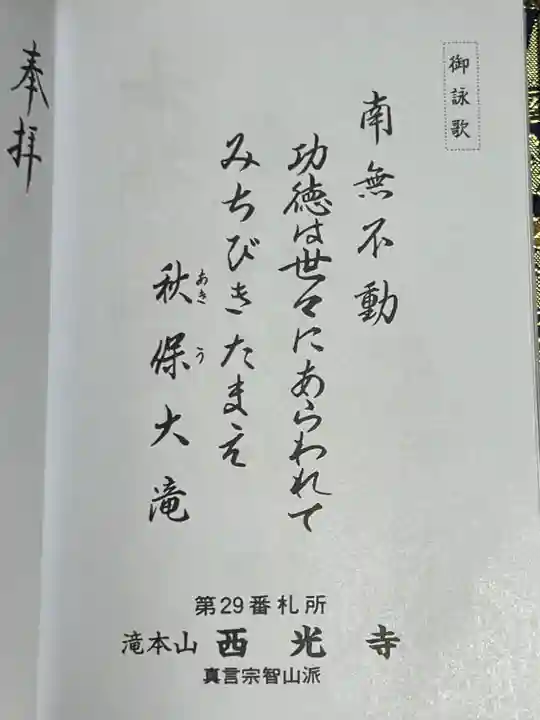 御詠歌
南無不動
功徳は世々にあらわれて
みちびきたまえ
秋保大滝
あきう
第29番札所
滝本山 西光寺
真言宗智山派
奉拝